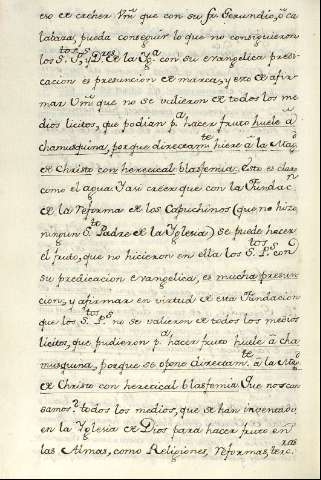 eso et creher Vm̃ que con su fr. Gerundio, ô ca
labaza, pueda conseguir lo que no consiguieron
los S.tos P.s y D.res et la Yg.a con su evangelica predi-
cacion es presuncion et marca; y esto et afir-
mar Vm̃ que no se valieron et todos los me-
dios licitos, que podian p.a hacer fruto huele â
chamusquina, porque directam.te hiere â la Mag.d
et Christo con heretical blasfemia. Esto es claro
como el agua: Y asi creer que con la Fundac.n
et la Reforma et los Capuchinos (que no hizo
ningun S.to Padre et la Yglesia) se puede hacer
el fruto, que no hicieron en ella los S.tos P.s con
su predicacion evangelica, es mucha presun-
cion, y afirmar en virtud et esta Fundacion
que los S.tos P.s no se valieron et todos los medios
licitos, que pudieron p.a hacer fruto huele â cha-
musquina, porque se opone directam.te â la Mag.d
et Christo con heretical blasfemia. Que nos can-
samos? todos los medios, que se han inventado
en la Yglesia et Dios para hacer fruto en
las Almas, como Religiones, Reformas, terc.ras